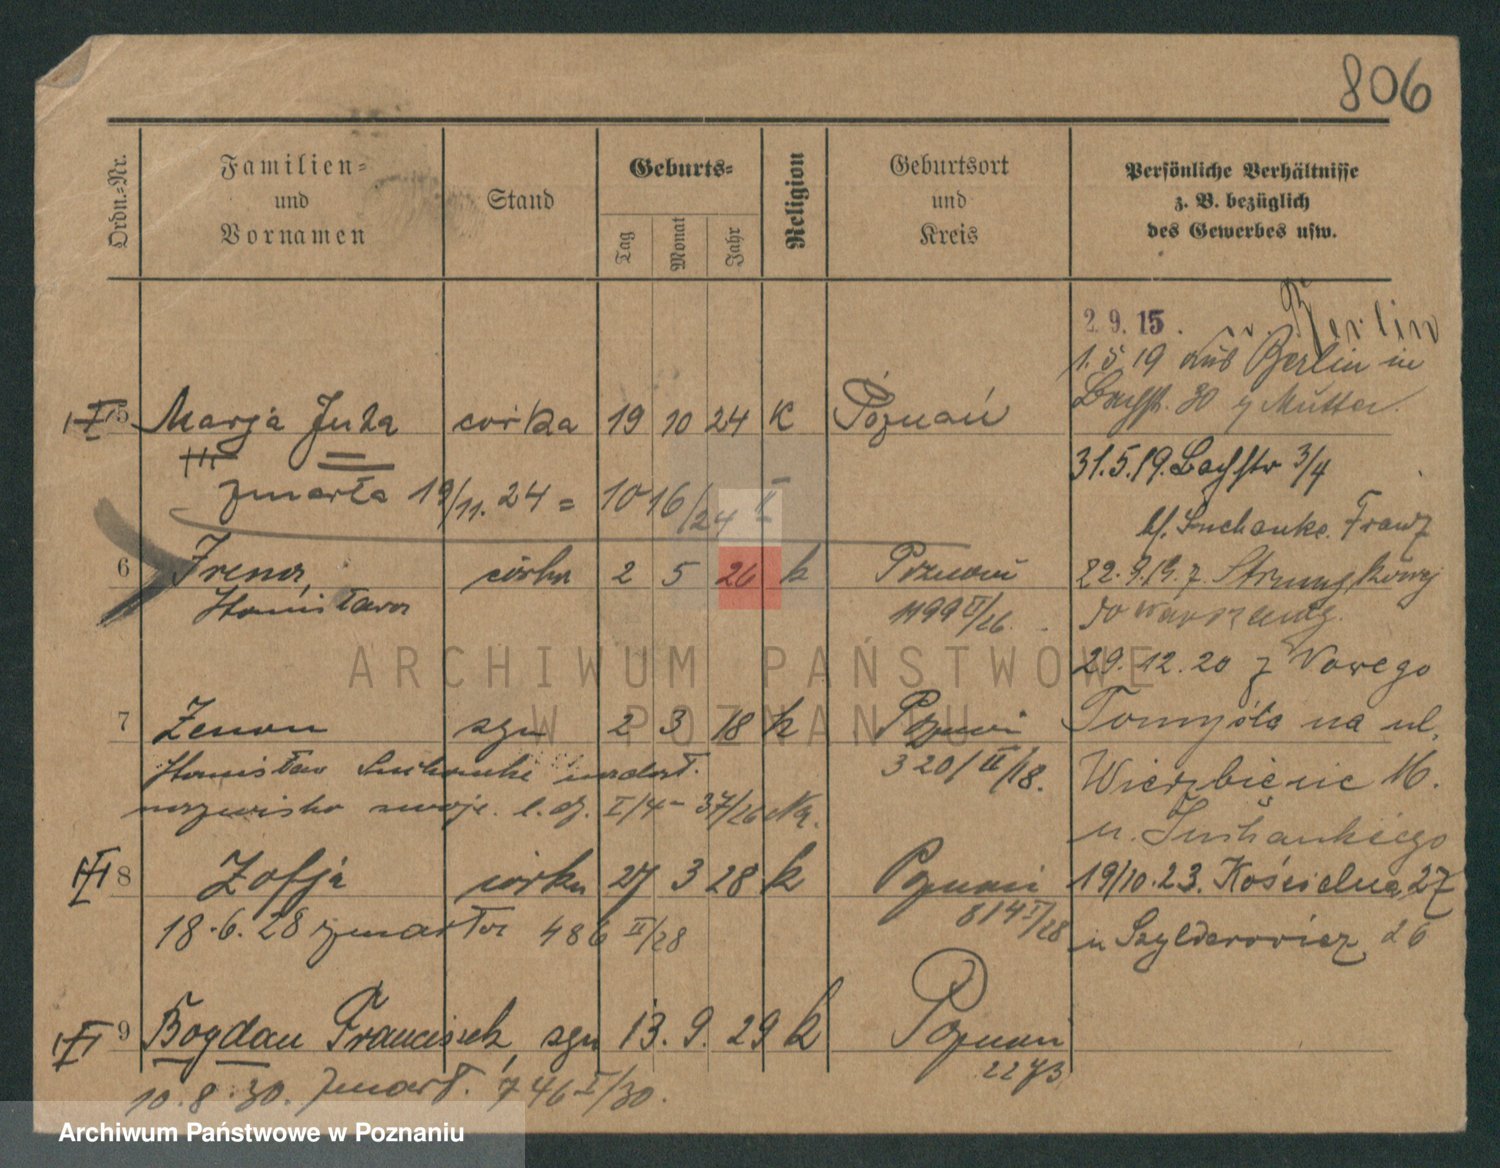 806
Ordn.-Nr.
Familien-
und
Vornamen
Stand
Geburts-
Tag
Monat
Jahr
Religion
Geburtsort
und
Kreis
Persönliche Verhältnisse
z. B. bezüglich
des Gewerbes usw.
2.9.15. v. Berlin
1.5 19 aus Berlin in
Bachstr. 30 Mutter.
5 Marja Juta córka 19 10 24 K Poznań
31.5.19. Bachstr 3/4
zmarła 19/11. 24 = 10 16/24 I
b/. Suchanke. Franz
6 Irena, córka 2 5 26 k Poznań
22.9.19. z.
Stanisława
1199 II/26.
do Warszawy.
29.12.20 z Nowego
7 Zenon syn 2 3 18 k Poznań
Tomyśla na ul.
Stanisław Suchanke nadał.
320/III/18.
Wierzbiecic 16.
nazwisko swoje. l. dz. I/4 - 37/26
u. Suchankiego
8 Zofja córka 27 3 28 k Poznań
19/10.23. Kościelna 27
18.6.28 zmarła 486 II/28
814 I/28
u Szylderowicz
9 Bogdan Franciszek, syn 13. 9. 29 k Poznań
2273
10.8.30. zmarł. 746 I/30.
ARCHIWUM PAŃSTWOWE
W POZNANIU
Archiwum Państwowe w Poznaniu